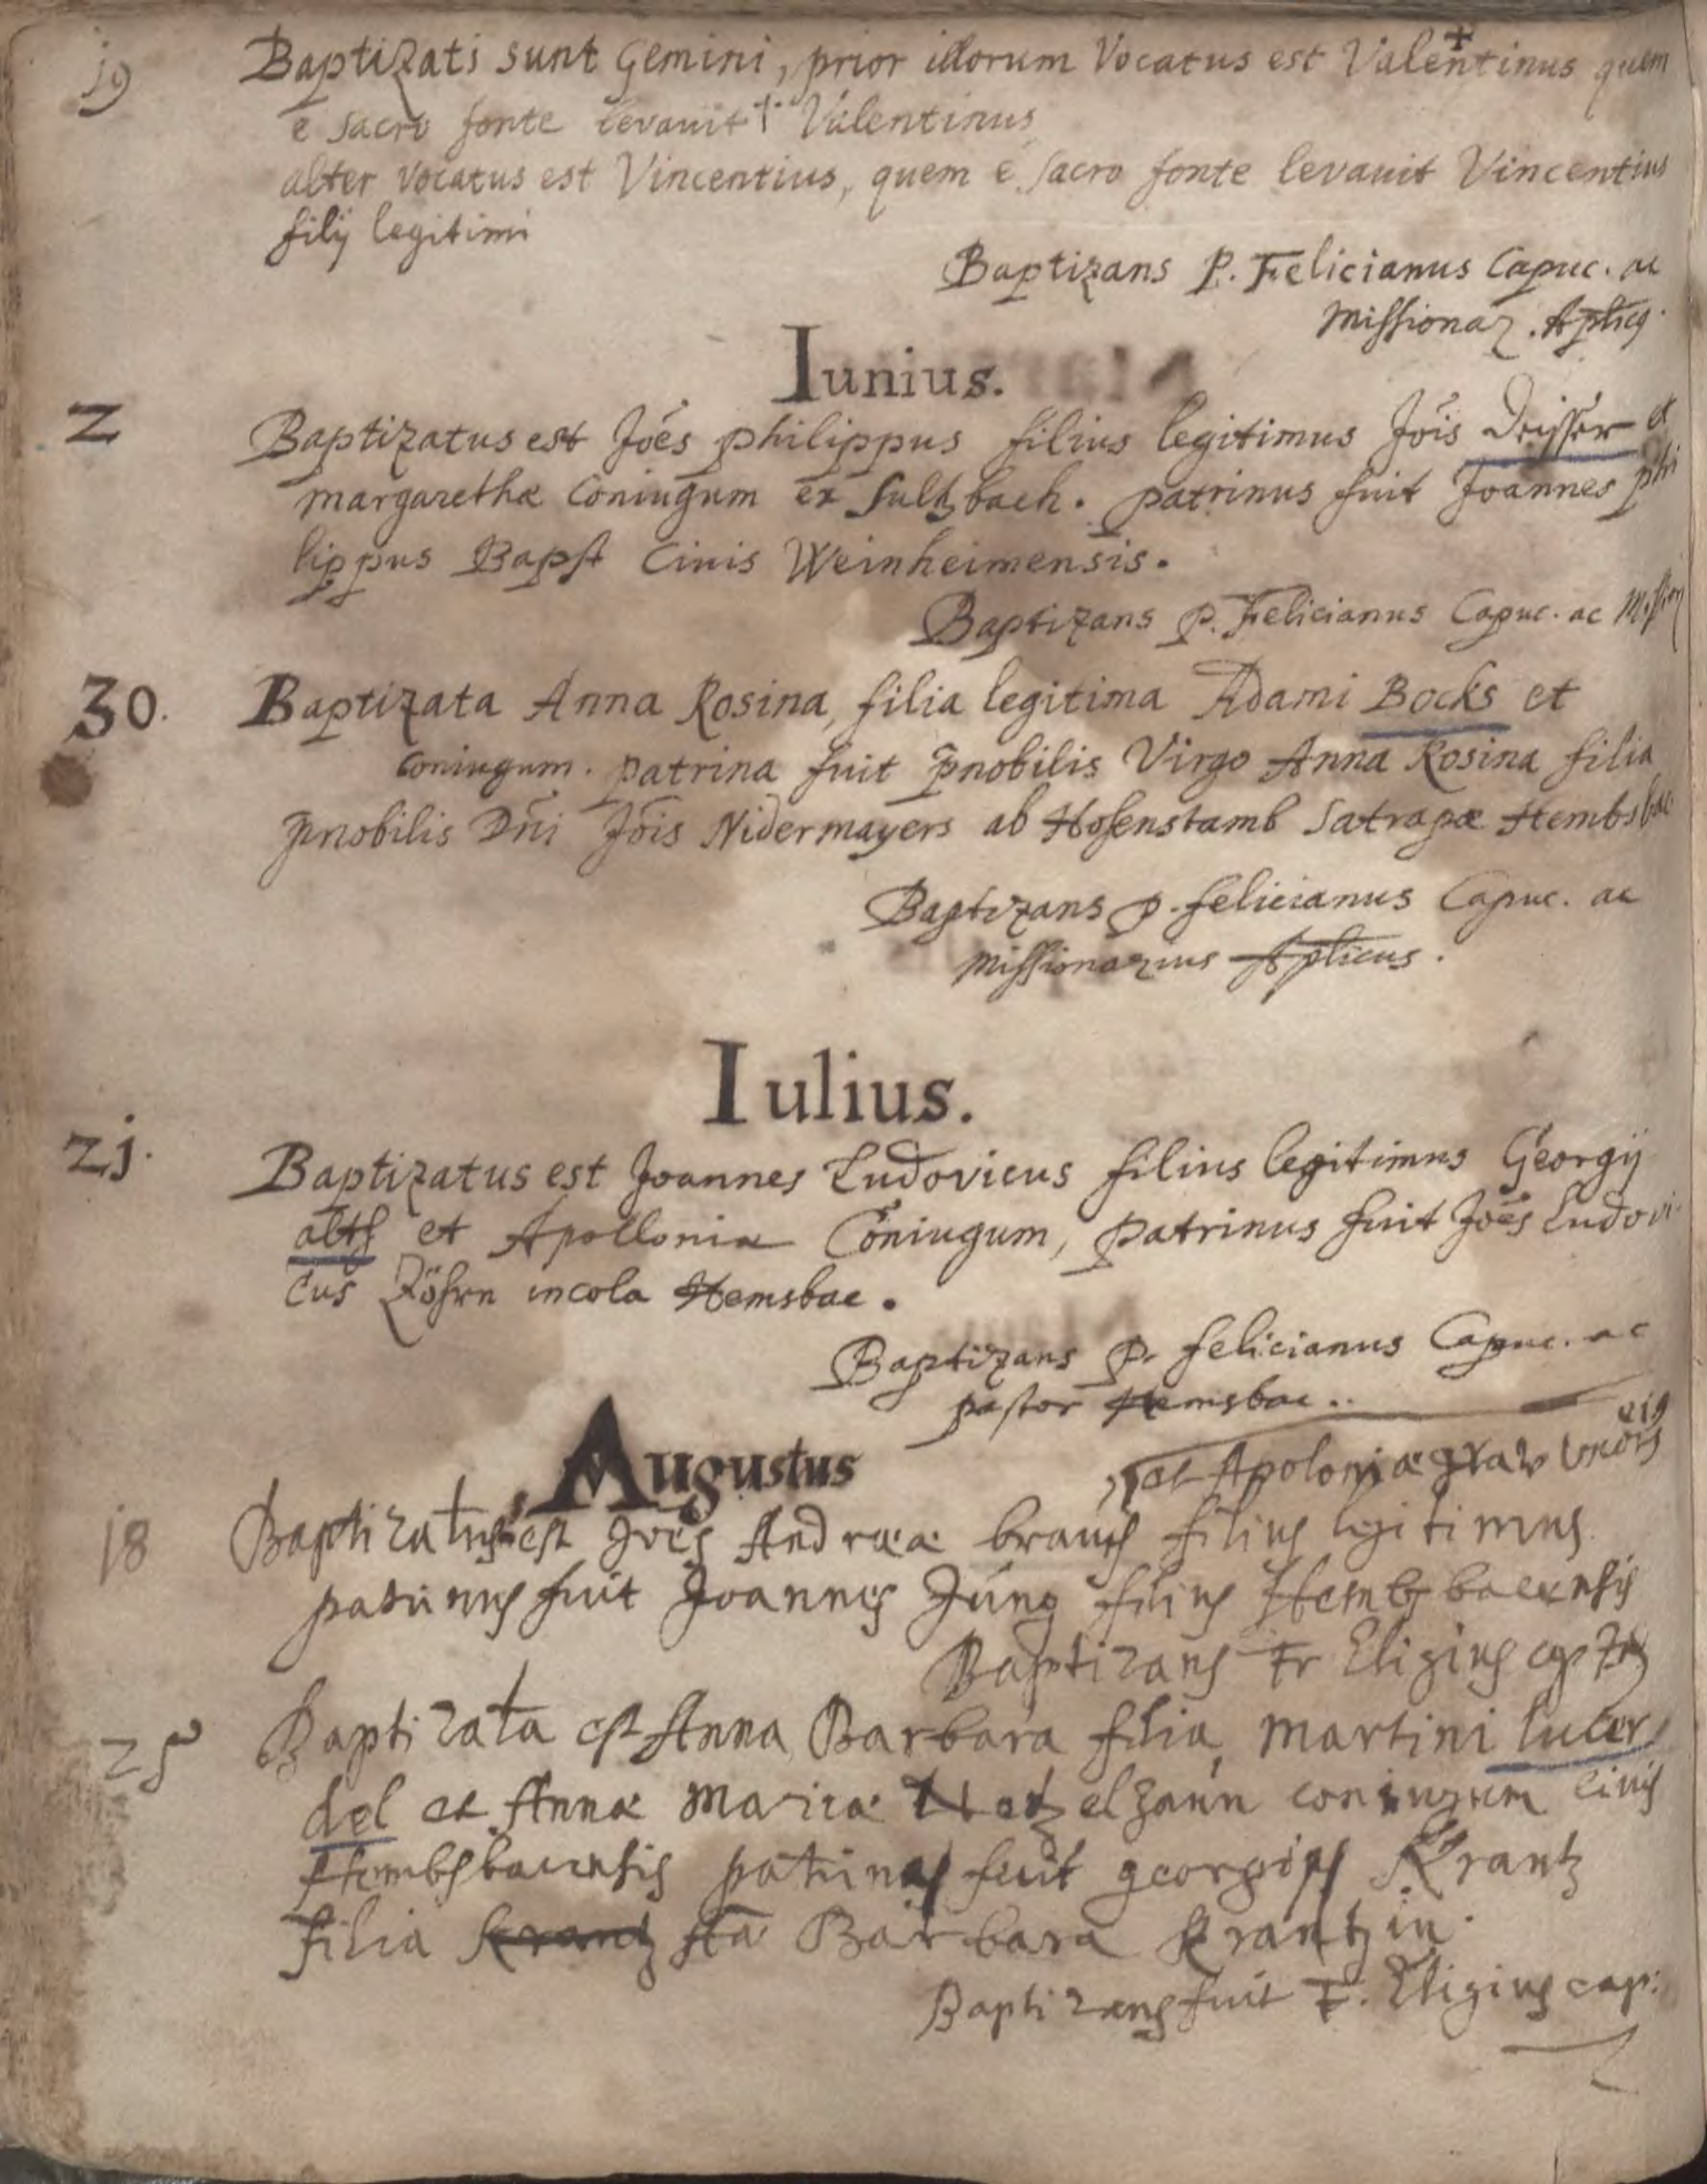 19 Baptizati sunt Gemini, prior illorum Vocatus est Valentinus quem
e sacro fonte levauit †. Valentinus
alter vocatus est Vincentius, quem e sacro fonte levauit Vincentius
filij legitimi
Baptizans P. Felicianus Capuc. ac
Missionar. Aplicq.
Iunius.
2 Baptizatus est Joés philippus filius legitimus Jois Deisser et
margarethæ Coniugum ex Sultzbach. patrinus fuit Joannes phi
lippus Bapst Ciuis Weinheimensis.
Baptizans P. Felicianus Capuc. ac Mission
30. Baptizata Anna Rosina, filia legitima Adami Bocks et
Coniugum. patrina fuit pnobilis Virgo Anna Rosina filia
pnobilis Dni Jois Nidermayers ab Hosenstamb Satrapæ Hembsbac
Baptizans P. felicianus Capuc. ac
missionarius Aplicus.
Iulius.
21. Baptizatus est Joannes Ludovicus filius legitimus Georgij
alts et Apolloniæ Coniugum, patrinus fuit Joés Ludovi
cus Röhrn incola Hemsbac.
Baptizans P. felicianus Capuc. ac
pastor Hemsbac..
Augustus
et Apoloniæ uxoris
eius
18 Baptizatus est Joes Andreæ brauch filius legitimus
patrinus fuit Joannes Jung filius Hembsbacensis
Baptizans Fr Eligius cap
25 Baptizata est Anna Barbara filia Martini lucer
del et Annæ Mariæ coniugum ciuis
Hembsbacensis patrinus fuit georgius Krantz
filia Krantz Barbara Krantzin.
Baptizans fuit F. Eligius cap: